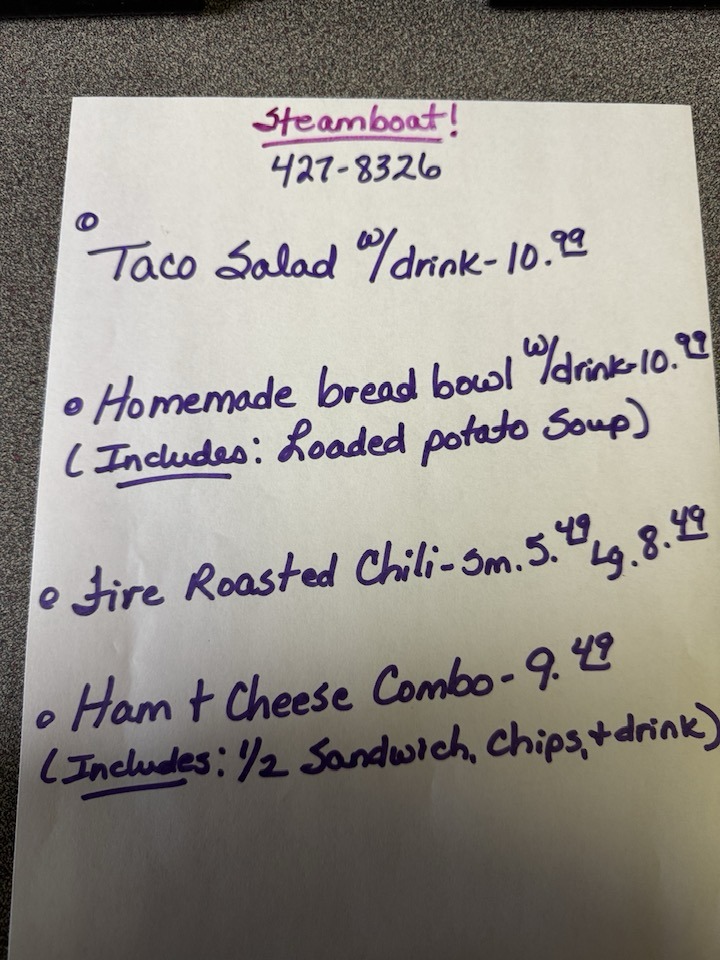 Steamboat!
427-8326
Taco Salad w/drink-10.99
• Homemade bread bowl w/drink-10.99
(Includes: Loaded potato Soup)
• Fire Roasted Chili-Sm. 5.49 Lg. 8.49
• Ham + Cheese Combo-9.49
(Includes: 1/2 Sandwich, Chips, + drink)